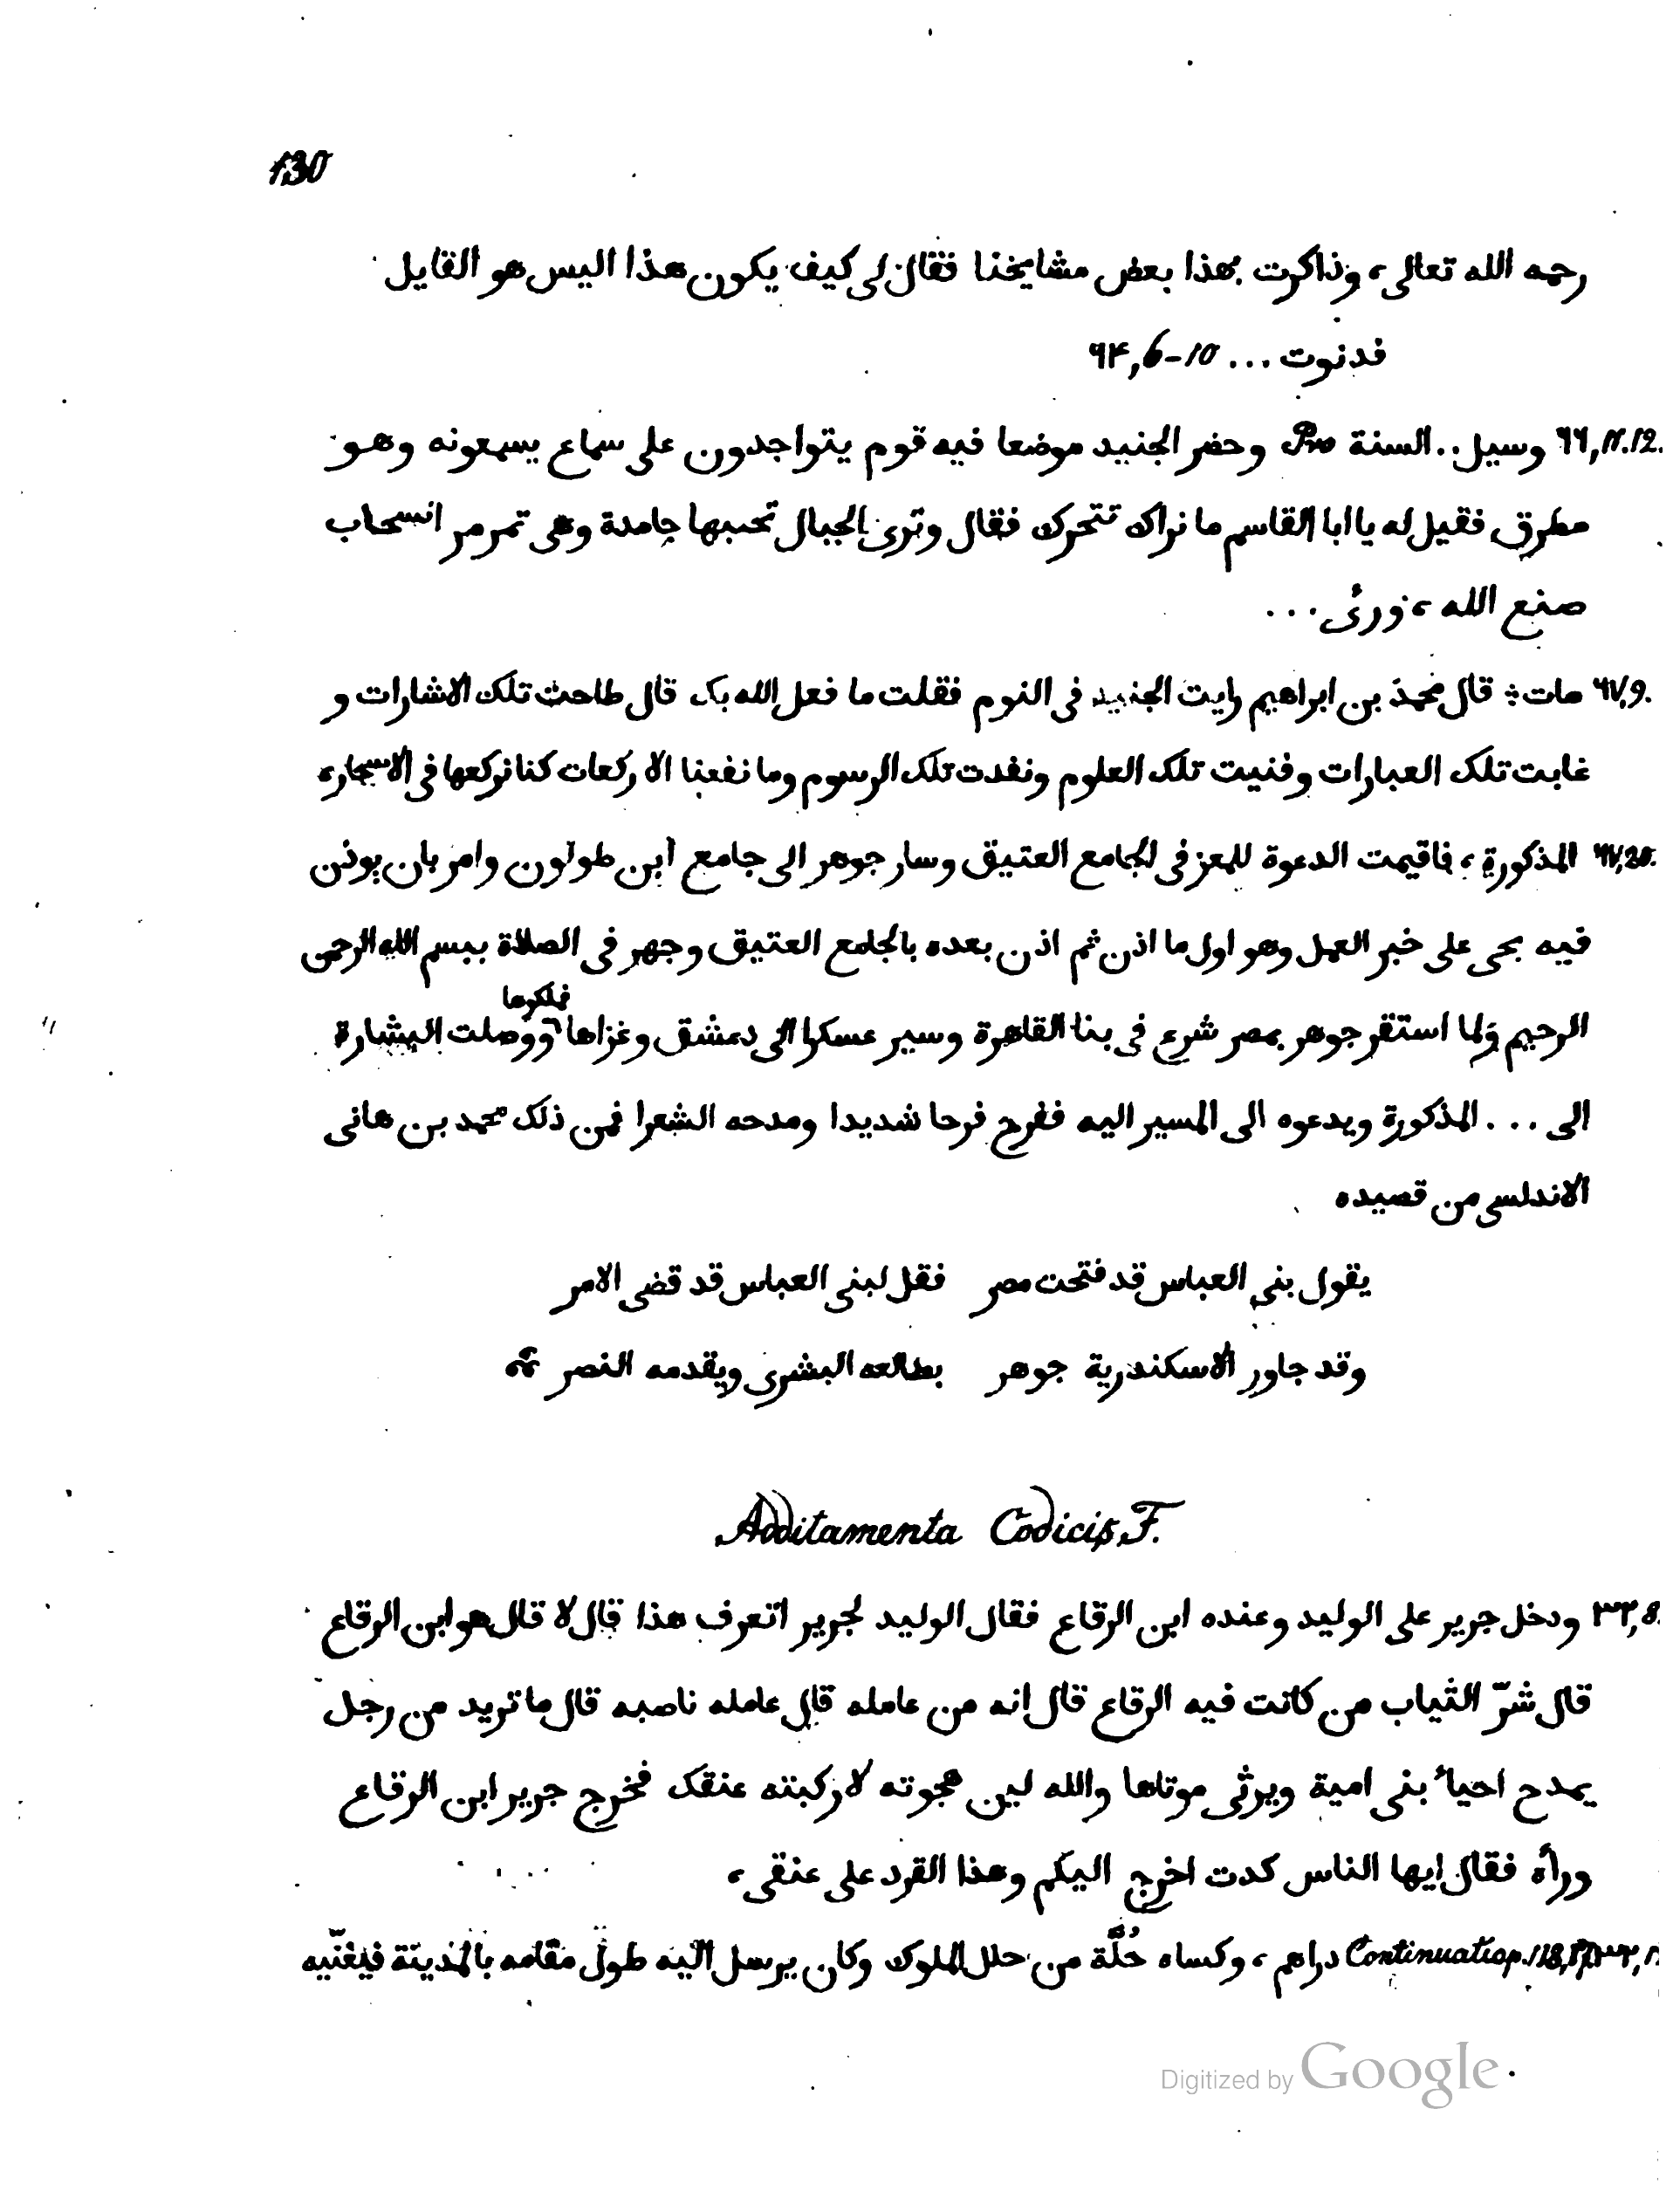 130
رحمه الله تعالى، وذاكرت بهذا بعض مشايخنا فقال لى كيف يكون هذا اليس هو القايل
فدنوت ... 10-6,٩۴
٦٦,11.12. وسيل.. السنة Pro وحضر الجنيد موضعا فيه قوم يتواجدون على سماع يسمعونه وهو
مطرق فقيل له يا ابا القاسم ما نراك تتحرك فقال وترى الجبال تحسبها جامدة وهى تمر مر السحاب
صنع الله، ورئى ...
٦٧,9. مات ؞ قال محمد بن ابراهيم رايت الجنيد فى النوم فقلت ما فعل الله بك قال طاحت تلك الاشارات و
غابت تلك العبارات وفنيت تلك العلوم ونفدت تلك الرسوم وما نفعنا الا ركعات كنا نركعها فى الاسحار،
المذكورة، فاقيمت الدعوة للمعز فى الجامع العتيق وسار جوهر الى جامع ابن طولون وامر بان يوذن
فيه بحى على خير العمل وهو اول ما اذن ثم اذن بعده بالجامع العتيق وجهر فى الصلاة ببسم الله الرحمن
الرحيم ولما استقر جوهر بمصر شرع فى بنا القاهرة وسير عسكرا الى دمشق وغزاها فملكوها ووصلت البشارة
الى ... المذكورة ويدعوه الى المسير اليه ففرح فرحا شديدا ومدحه الشعرا فمن ذلك محمد بن هانى
الاندلسى من قصيده
يقول بنى العباس قد فتحت مصر فقل لبنى العباس قد قضى الامر
وقد جاور الاسكندرية جوهر بطالعه البشرى ويقدمه النصر
Additamenta Codicis F.
٣٣,8. ودخل جرير على الوليد وعنده ابن الرقاع فقال الوليد لجرير اتعرف هذا قال لا قال هو ابن الرقاع
قال شرّ الثياب من كانت فيه الرقاع قال انه من عامله قال عامله ناصبه قال ما تريد من رجل
يمدح احياء بنى امية ويرثى موتاها والله لين هجوته لاركبنه عنقك فخرج جرير ابن الرقاع
وراه فقال ايها الناس كدت اخرج اليكم وهذا القرد على عنقى،
Continuatio p. 118, دراهم، وكساه حُلَّة من حلل الملوك وكان يرسل اليه طول مقامه بالمدينة فيغنّيه
Digitized by Google